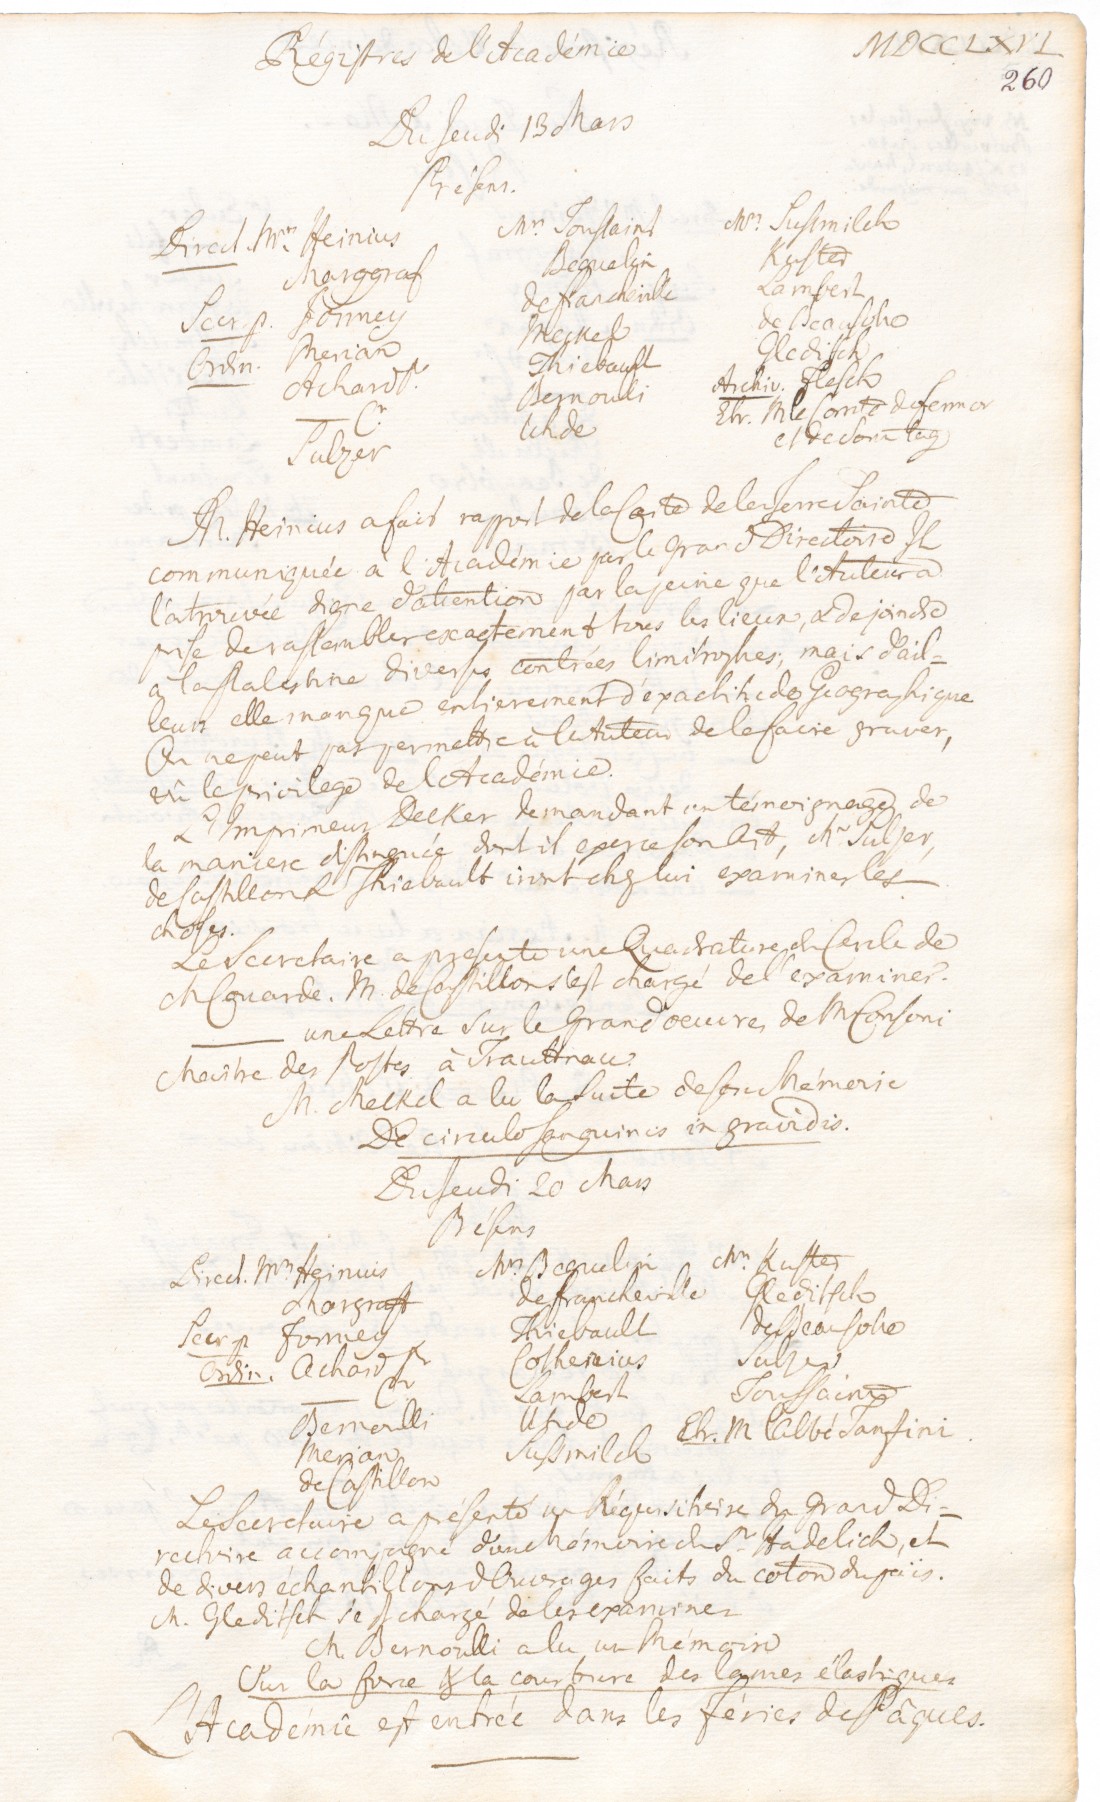 Régistres de l'Académie
MDCCLXVI
260
Du Jeudi 13 Mars
Présens.
Direct. Mrs Heinius
Marggraf
Secr. p. Formey
Ordin. Merian
Achard Pr.
— Cr.
Sulzer
Mrs Toussaint
Beguelin
de francheville
Meckel
Thiebault
Bernoulli
Uhde
Mrs Sussmilch
Kuster
Lambert
de Beausobre
Gleditsch
Archiv. Flesch
Etr. M le Comte de Fermor
et de Sonntag
M. Heinius a fait rapport de la Carte de la Terre Sainte
communiquée à l'Académie par le grand Directoire Il
l'a trouvée digne d'attention par la peine que l'Auteur a
prise de rassembler exactement tous les lieux, & de joindre
à la Palestine diverses contrées limitrophes; mais d'ail-
leurs elle manque entierement d'exactitude Géographique
On ne peut pas permettre à l'Auteur de le faire graver,
vû le privilege de l'Académie.
L'Imprimeur Decker demandant un témoignage de
la maniere distinguée dont il exerce son Art, Mrs Sulzer,
de Castillon & Thiebault iront chez lui examiner les
choses.
Le Secretaire a présenté une Quadrature du Cercle de
M Cquarde. M. de Castillon s'est chargé de l'examiner.
— une Lettre sur le Grand oeuvre, de M Consoni
Maitre des Postes à Trauttnau.
M. Meckel a lu la Suite de son Mémoire
De circulo Sanguinis in gravidis.
Du Jeudi 20 Mars
Présens
Direct. Mrs Heinius
Marggraff
Secr p Formey
Ordin. Achard Pr
— Cr
Bernoulli
Merian
de Castillon
Mrs Beguelin
de francheville
Thiebault
Cothenius
Lambert
Uhde
Sussmilch
Mrs Kuster
Gleditsch
de Beausobre
Sulzer
Toussaint
Etr. M l'Abbé Tanfini.
Le Secretaire a présenté un Réquisitoire du grand Di-
rectoire accompagné d'un Mémoire du Sr Hadelich, et
de divers échantillons d'Ouvrages faits du coton du païs.
M. Gleditsch s'est chargé de les examiner
M. Bernoulli a lu un Mémoire
Sur la force & la courbure des lames élastiques
L'Académie est entrée dans les féries de Pâques.